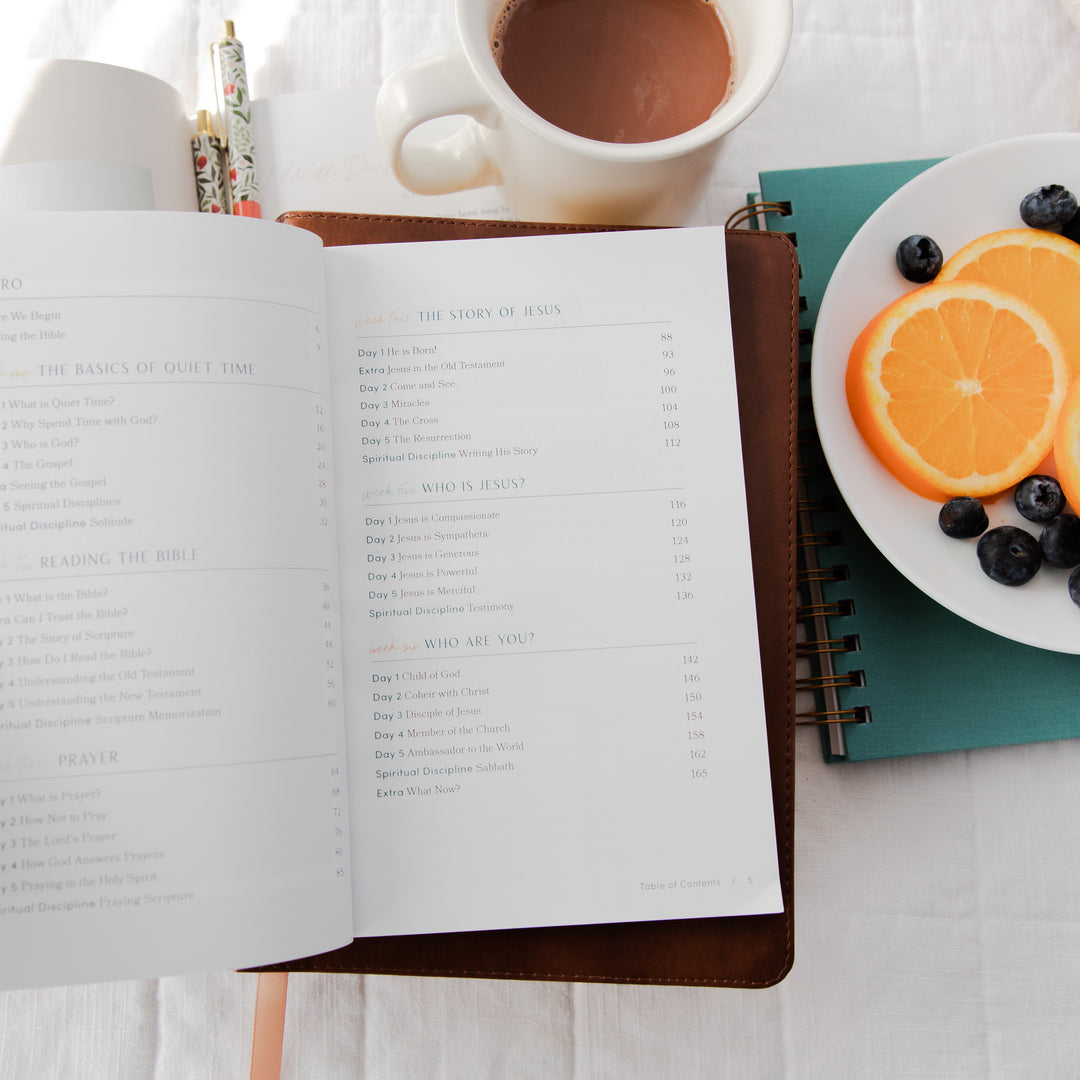 RO
re We Begin
ing the Bible
6
9
me THE BASICS OF QUIET TIME
1 What is Quiet Time?
12
2 Why Spend Time with God?
16
3 Who is God?
20
4 The Gospel
24
a Seeing the Gospel
28
5 Spiritual Disciplines
30
itual Discipline Solitude
32
READING THE BIBLE
y 1 What is the Bible?
36
ra Can I Trust the Bible?
40
y 2 The Story of Scripture
44
y 3 How Do I Read the Bible?
48
y 4 Understanding the Old Testament
52
y 5 Understanding the New Testament
56
iritual Discipline Scripture Memorization
60
three PRAYER
y 1 What is Prayer?
64
y 2 How Not to Pray
68
y 3 The Lord's Prayer
72
y 4 How God Answers Prayers
76
y 5 Praying in the Holy Spirit
80
iritual Discipline Praying Scripture
85
week four THE STORY OF JESUS
Day 1 He is Born! 88
Extra Jesus in the Old Testament 93
Day 2 Come and See 96
Day 3 Miracles 100
Day 4 The Cross 104
Day 5 The Resurrection 108
Spiritual Discipline Writing His Story 112
week five WHO IS JESUS?
Day 1 Jesus is Compassionate 116
Day 2 Jesus is Sympathetic 120
Day 3 Jesus is Generous 124
Day 4 Jesus is Powerful 128
Day 5 Jesus is Merciful 132
Spiritual Discipline Testimony 136
week six WHO ARE YOU?
Day 1 Child of God 142
Day 2 Coheir with Christ 146
Day 3 Disciple of Jesus 150
Day 4 Member of the Church 154
Day 5 Ambassador to the World 158
Spiritual Discipline Sabbath 162
Extra What Now? 165
Table of Contents / 5